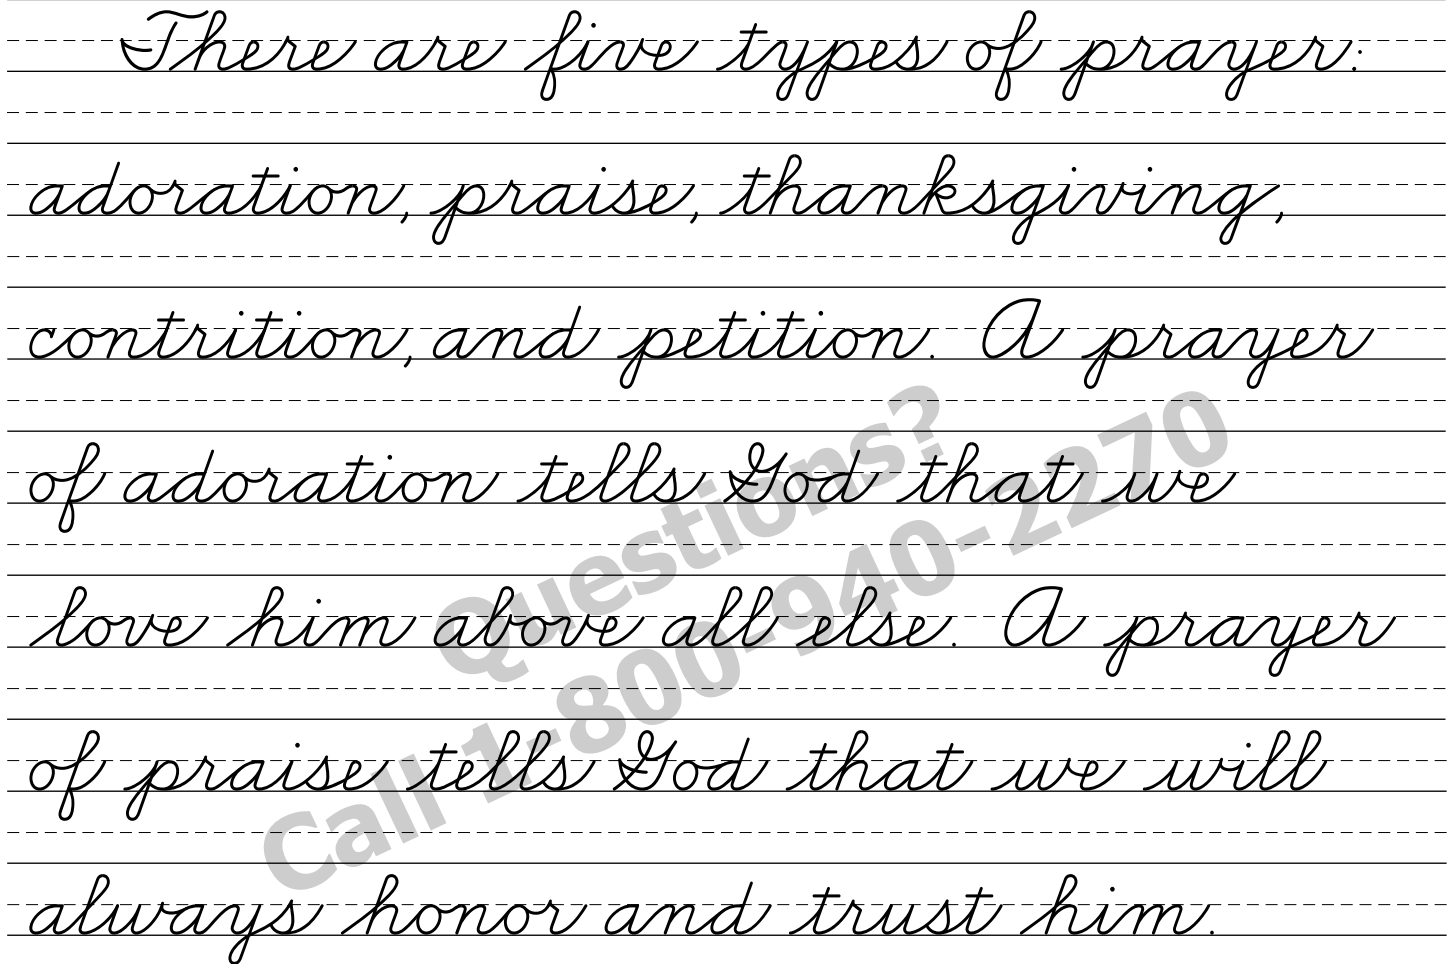 There are five types of prayer:
adoration, praise, thanksgiving,
contrition, and petition. A prayer
of adoration tells God that we
love him above all else. A prayer
of praise tells God that we will
always honor and trust him.
Questions?
Call 1-800-940-2270